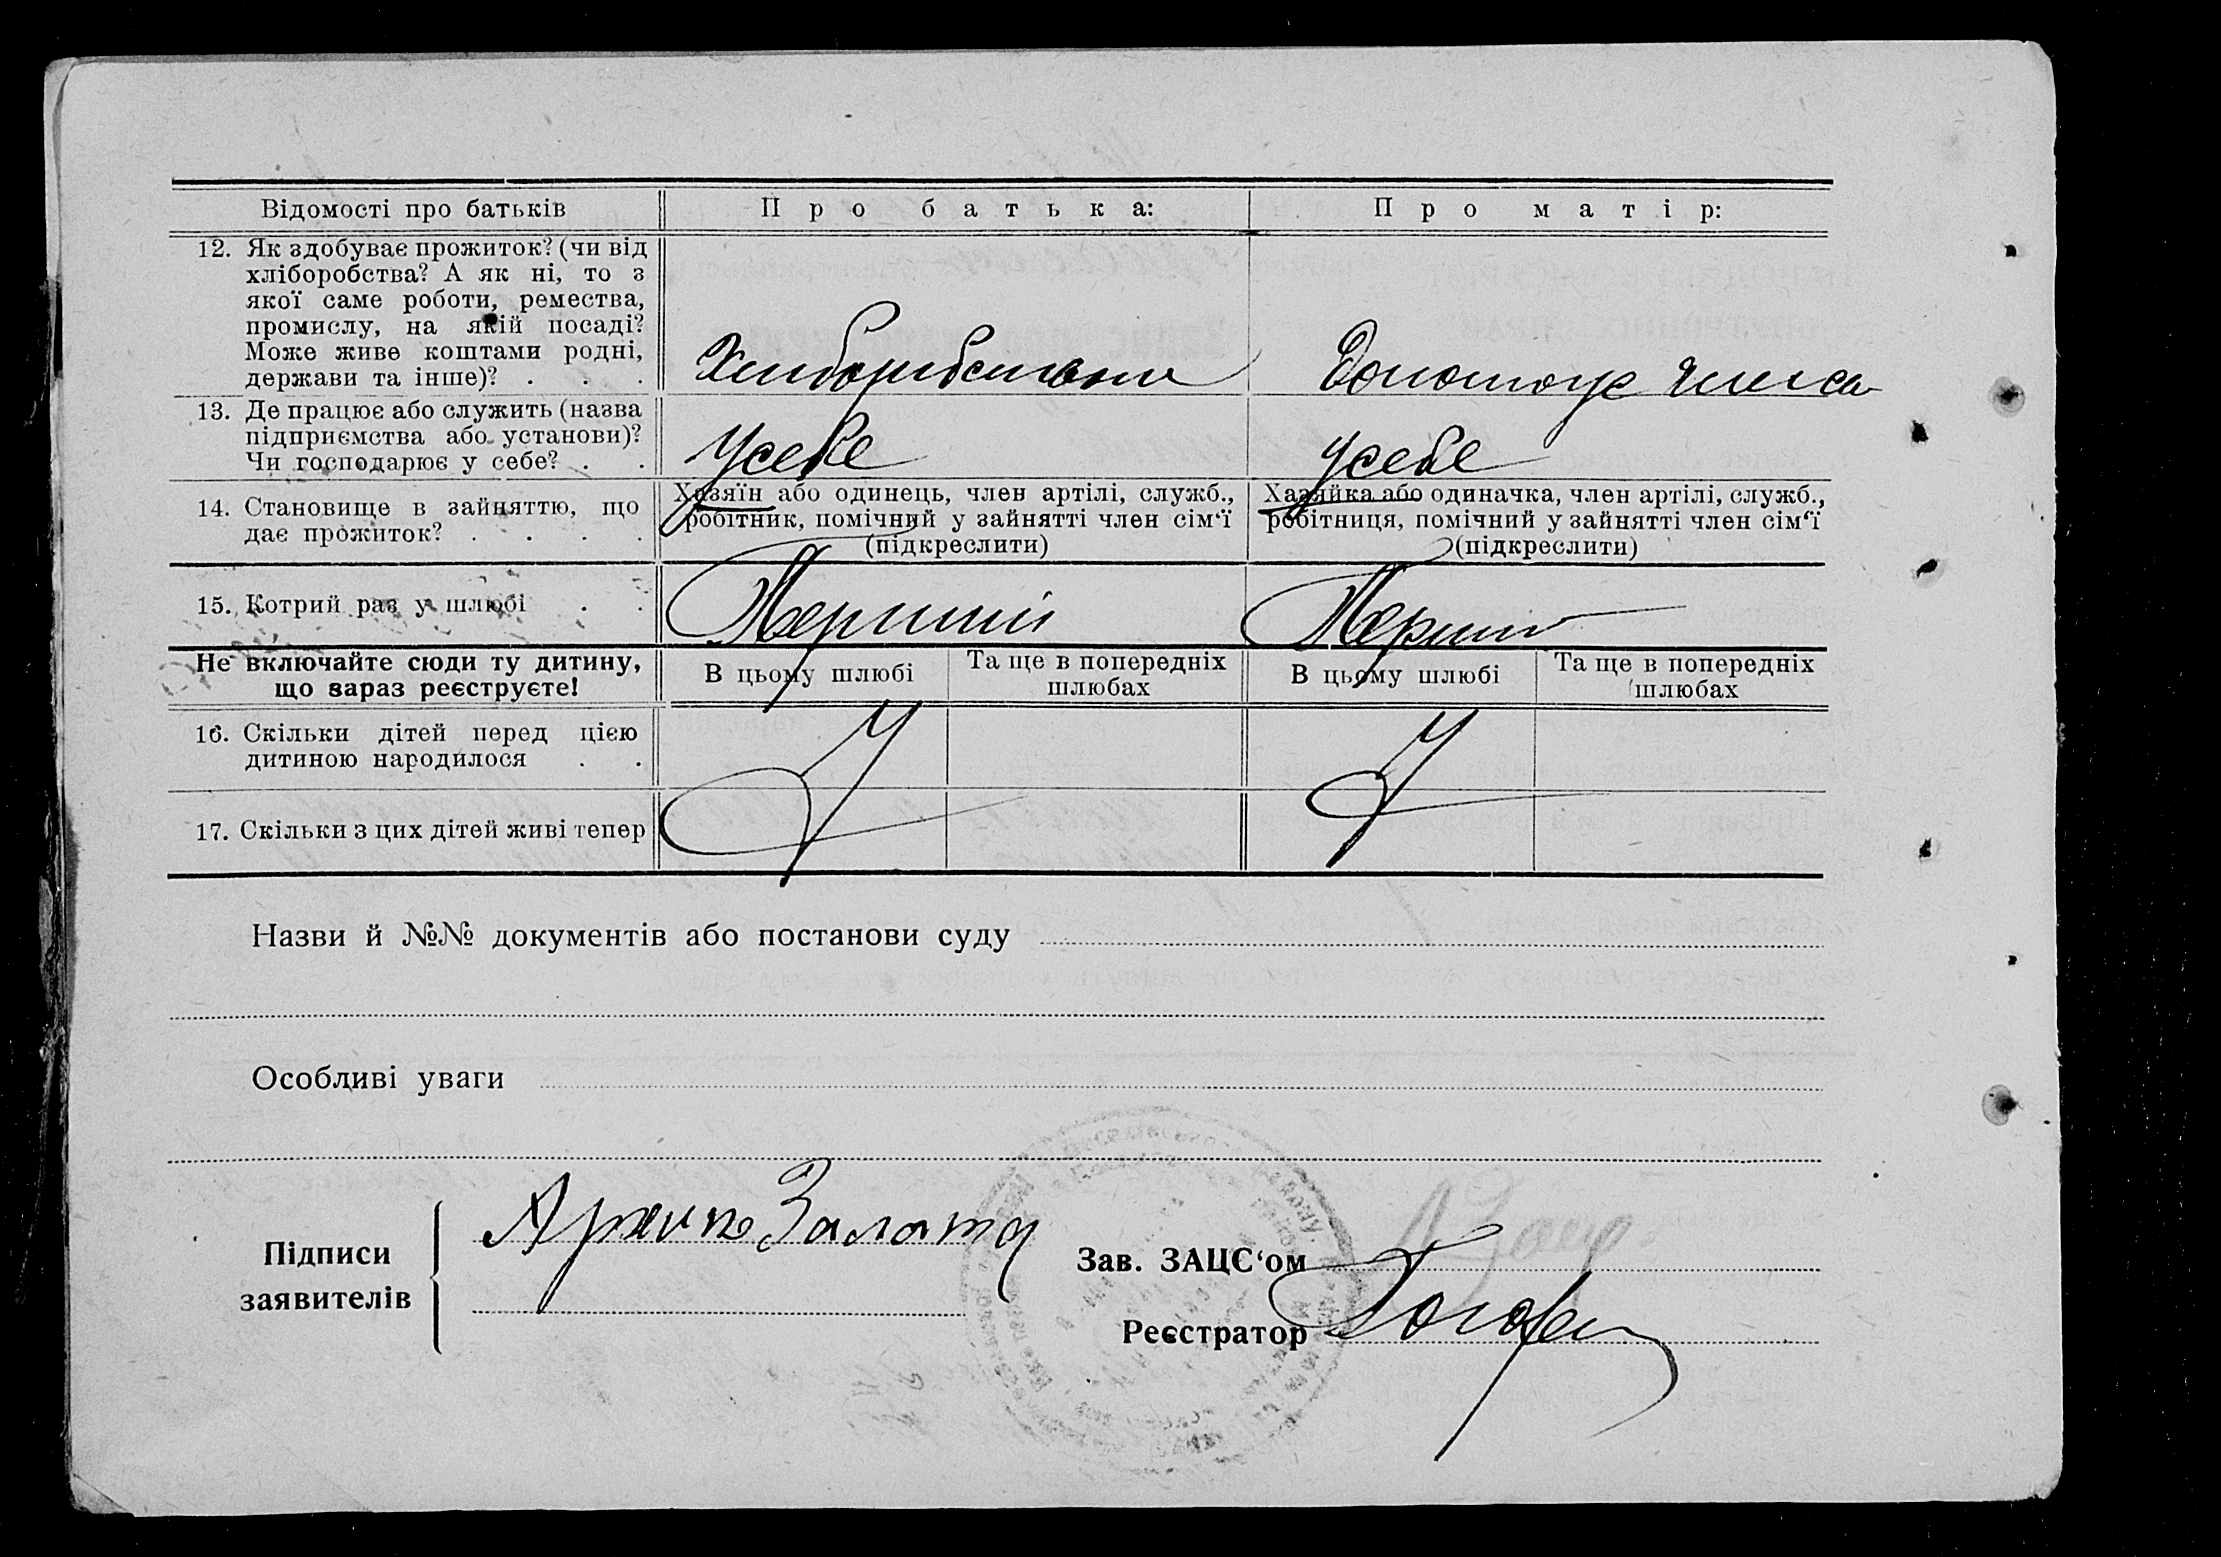 Відомості про батьків
Про батька:
Про матір:
12. Як здобуває прожиток? (чи від
хліборобства? А як ні, то з
якої саме роботи, ремества,
промислу, на якій посаді?
Може живе коштами родні,
держави та інше)? . . .
13. Де працює або служить (назва
підприємства або установи)?
Чи господарює у себе? . .
усебе
усебе
14. Становище в зайняттю, що
дає прожиток? . . . .
Хазяїн або одинець, член артілі, служб.,
робітник, помічний у зайнятті член сім‘ї
(підкреслити)
Хазяйка або одиначка, член артілі, служб.,
робітниця, помічний у зайнятті член сім‘ї
(підкреслити)
15. Котрий раз у шлюбі . .
Перший
Перший
Не включайте сюди ту дитину,
що зараз реєструєте!
В цьому шлюбі
Та ще в попередніх
шлюбах
В цьому шлюбі
Та ще в попередніх
шлюбах
16. Скільки дітей перед цією
дитиною народилося . .
17. Скільки з цих дітей живі тепер
Назви й №№ документів або постанови суду
Особливі уваги
Підписи
заявителів
Зав. ЗАЦС‘ом
Реєстратор